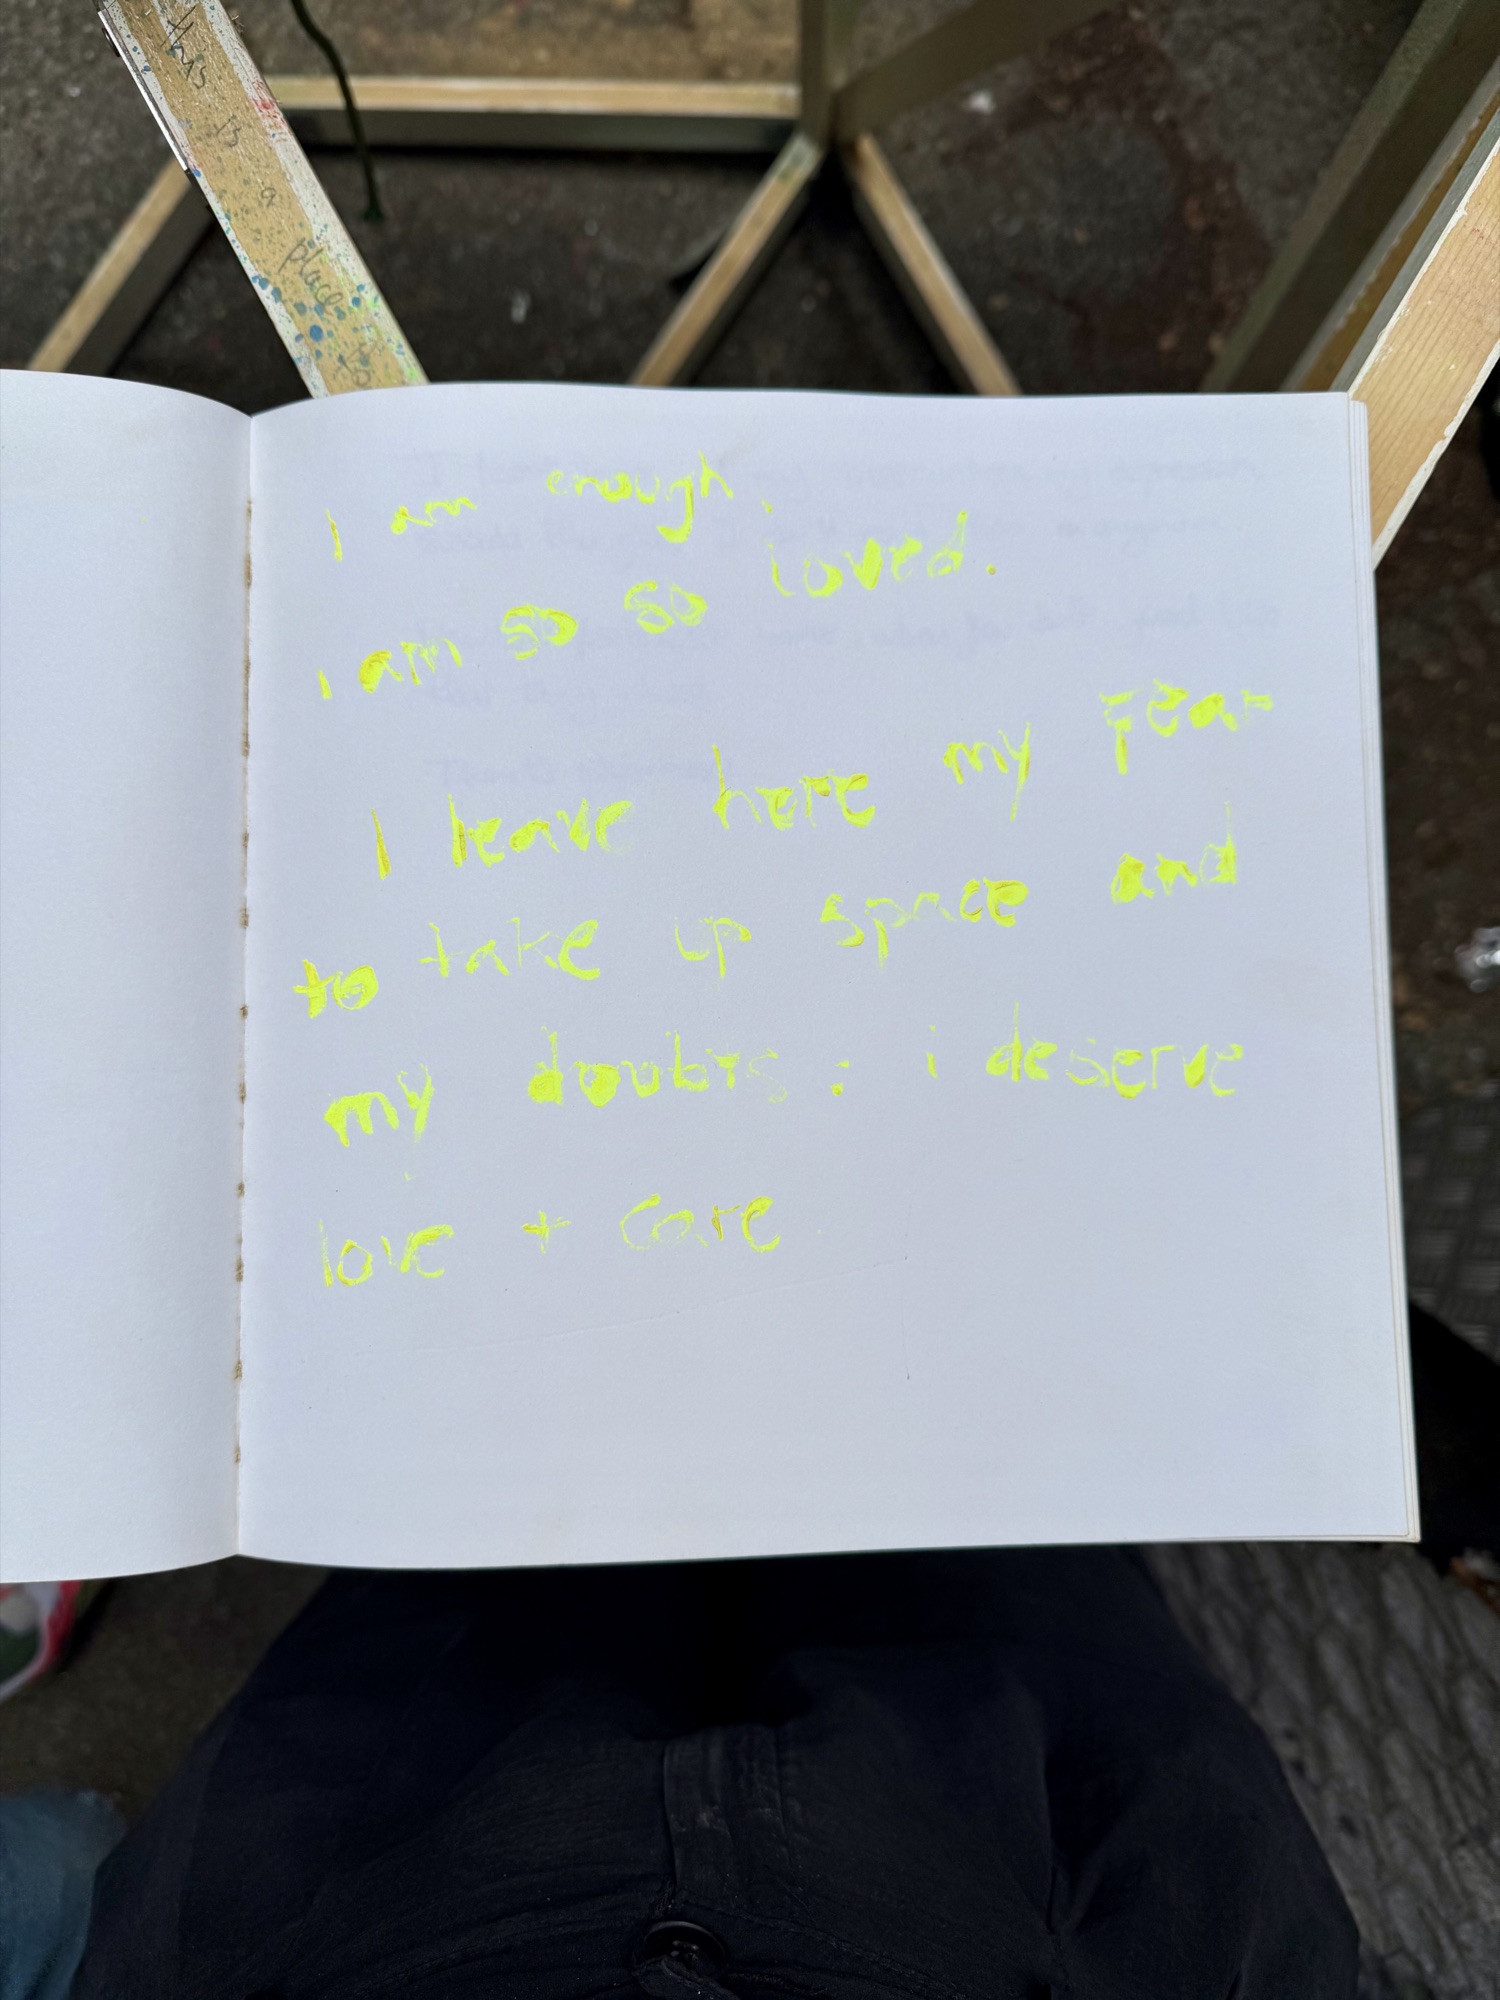 this
is
a
place
to
I am enough.
i am so so loved.
I leave here my fear
to take up space and
my doubts : i deserve
love + care